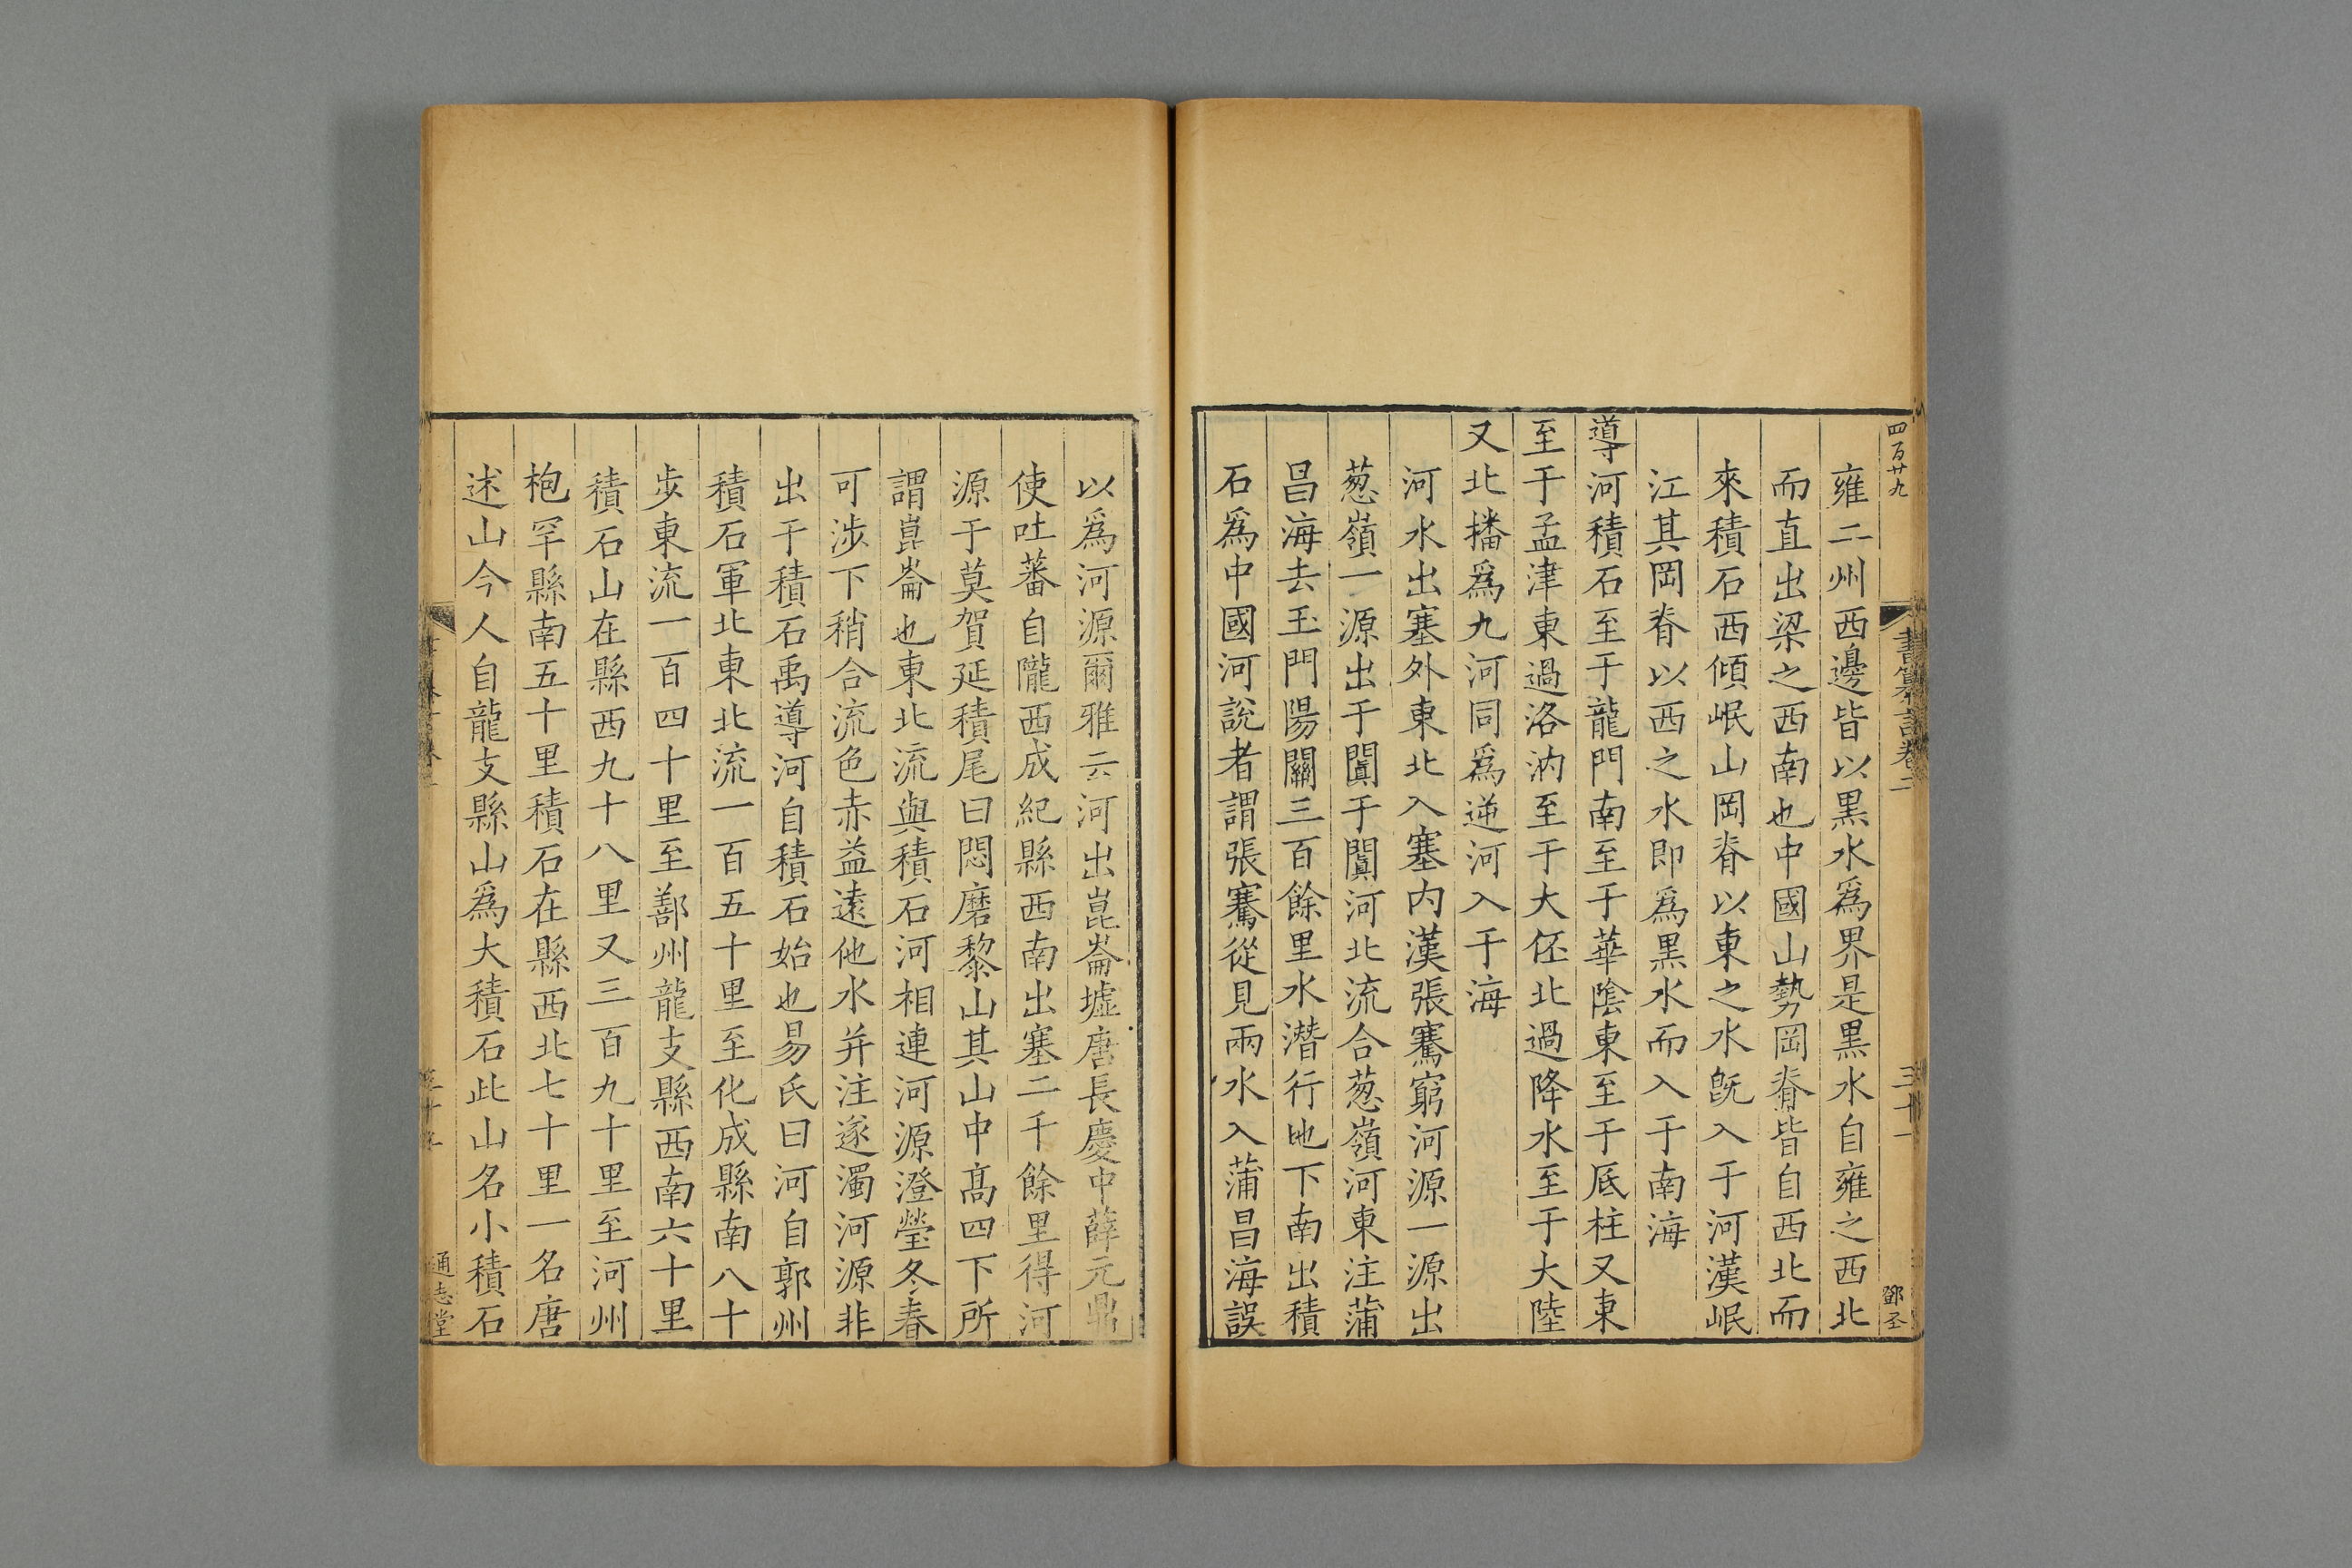 四百廿九
書纂言卷二
三十一
鄧圣
雍二州西邊皆以黒水爲界是黒水自雍之西北
而直出梁之西南也中國山勢岡脊皆自西北而
來積石西傾岷山岡脊以東之水旣入于河漢岷
江其岡脊以西之水即爲黒水而入于南海
導河積石至于龍門南至于華陰東至于底柱又東
至于孟津東過洛汭至于大伾北過降水至于大陸
又北播爲九河同爲逆河入于海
河水出塞外東北入塞内漢張騫窮河源一源出
葱嶺一源出于闐于闐河北流合葱嶺河東注蒲
昌海去玉門陽關三百餘里水潜行地下南出積
石爲中國河說者謂張騫從見兩水入蒲昌海誤
以爲河源爾雅云河出崑崙墟唐長慶中薛元鼎
使吐蕃自隴西成紀縣西南出塞二千餘里得河
源于莫賀延積尾曰悶磨黎山其山中髙四下所
謂崑崙也東北流與積石河相連河源澄瑩冬春
可涉下稍合流色赤益遠他水并注遂濁河源非
出于積石禹導河自積石始也易氏曰河自郭州
積石軍北東北流一百五十里至化成縣南八十
步東流一百四十里至鄯州龍支縣西南六十里
積石山在縣西九十八里又三百九十里至河州
枹罕縣南五十里積石在縣西北七十里一名唐
述山今人自龍支縣山爲大積石此山名小積石
通志堂